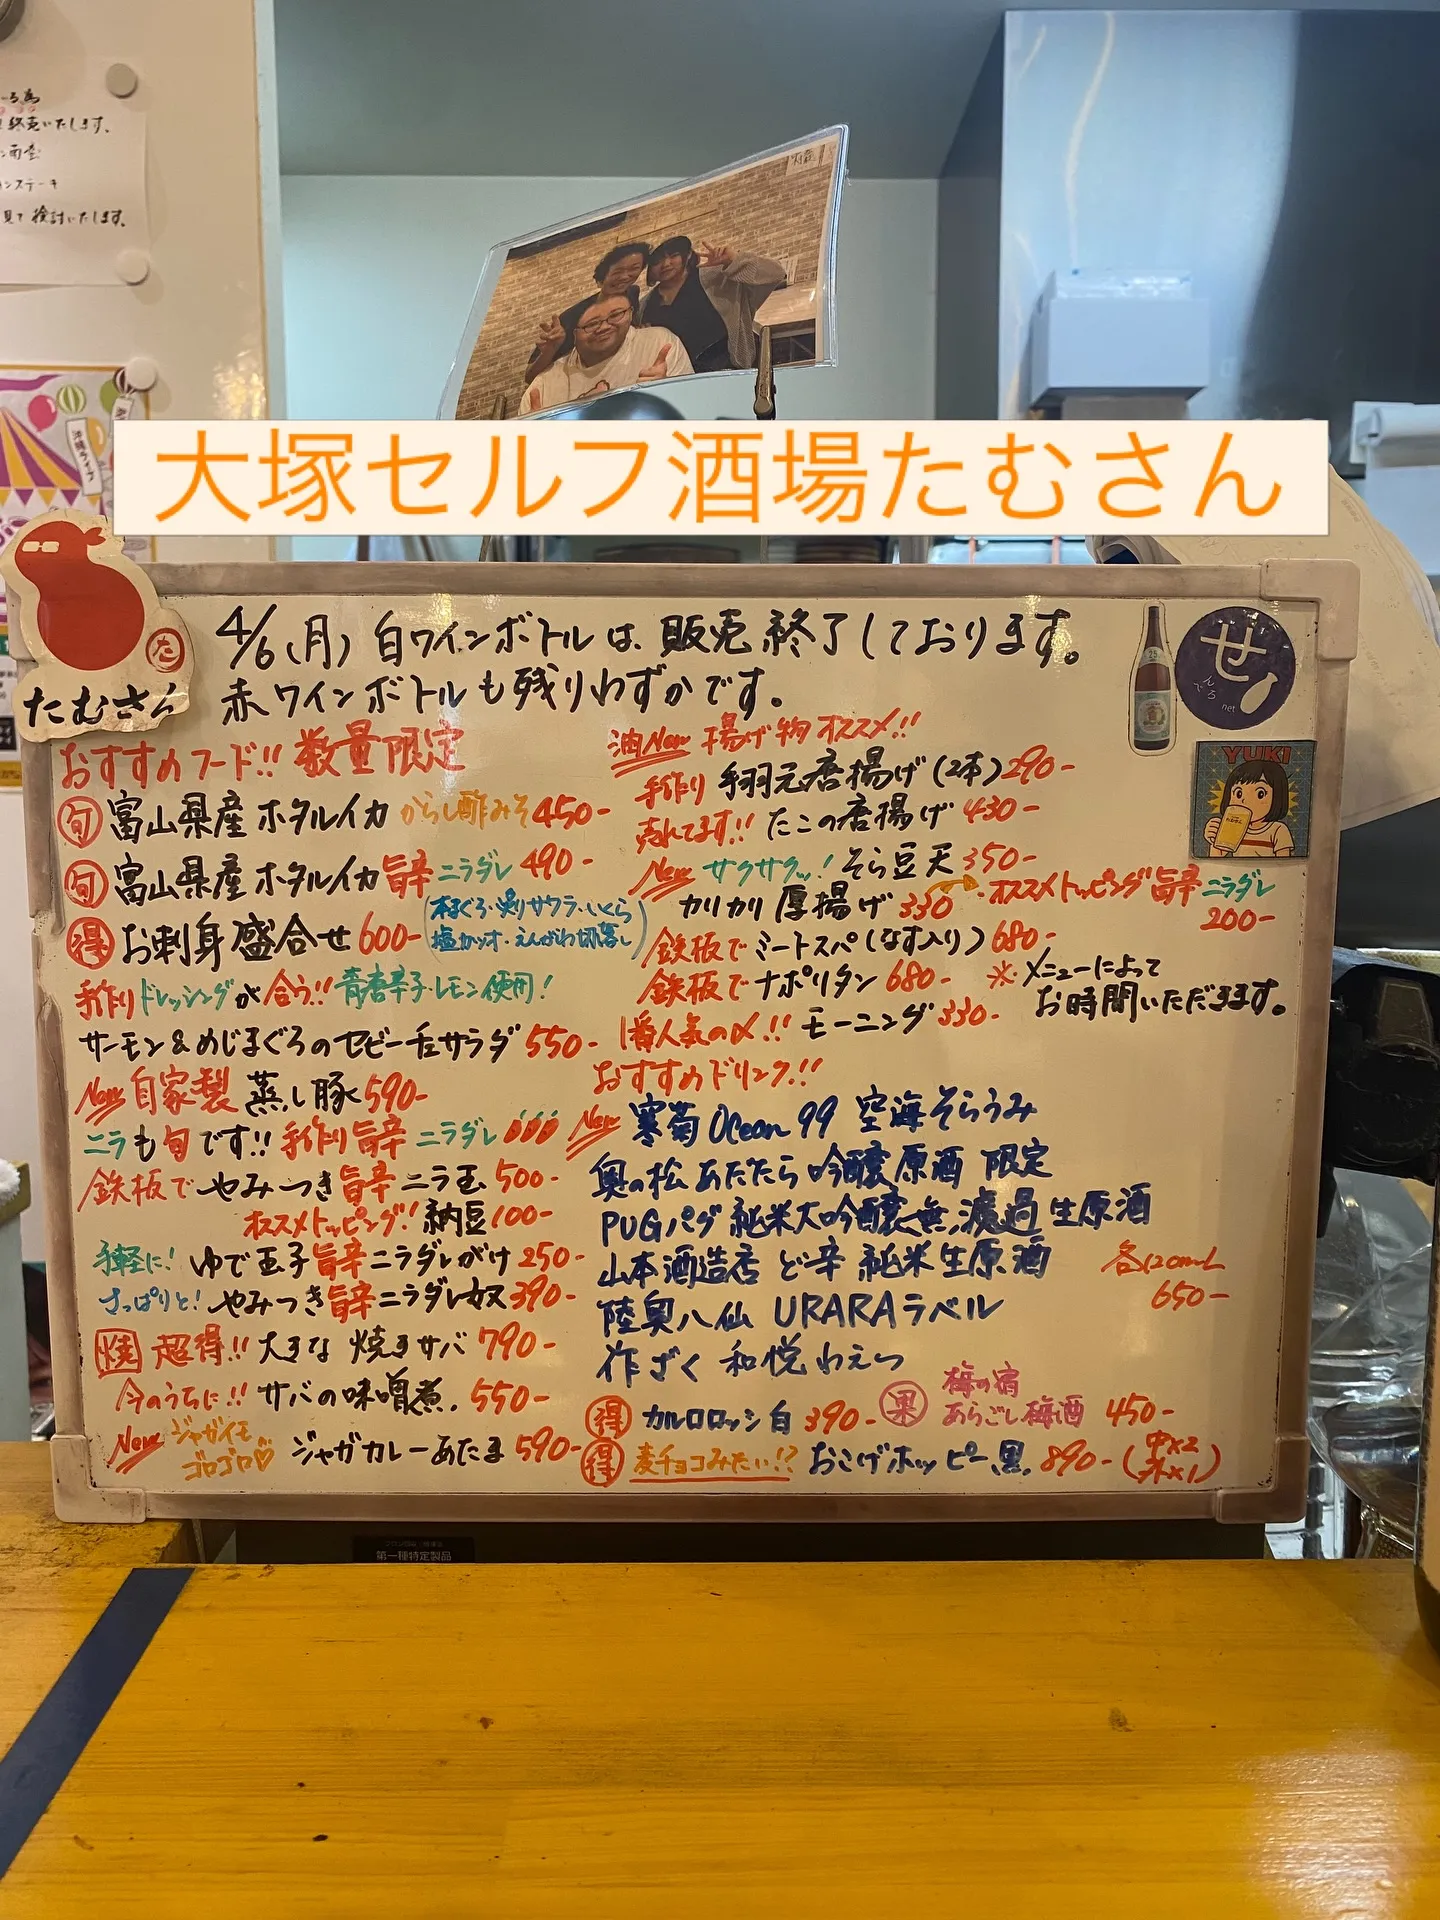 終売いたします。
ンステーキ
見て検討いたします。
大塚セルフ酒場たむさん
た
たむさん
4/6(月) 白ワインボトルは、販売終了しております。
赤ワインボトルも残りわずかです。
せ
んべろ
net
YUKI
おすすめフード!! 数量限定
旬 富山県産 ホタルイカ からし酢みそ 450-
旬 富山県産 ホタルイカ 旨辛 ニラダレ 490-
得 お刺身盛合せ 600- (本まぐろ・炙りサワラ・いくら
塩カツオ・えんがわ切落し)
手作りドレッシングが合う!! 青唐辛子・レモン使用!
サーモン&めじまぐろのセビーチェサラダ 550-
New 自家製 蒸し豚 590-
ニラも旬です!! 手作り旨辛 ニラダレ
鉄板で やみつき旨辛ニラ玉 500-
オススメトッピング! 納豆100-
手軽に! ゆで玉子旨辛ニラダレがけ 250-
さっぱりと! やみつき旨辛ニラダレ奴 390-
焼 超得!! 大きな 焼きサバ 790-
今のうちに!! サバの味噌煮. 550-
New ジャガイモ
ゴロゴロ♡ ジャガカレーあたま 590-
油New 揚げ物オススメ!!
手作り 手羽元唐揚げ(2本) 290-
売れてます!! たこの唐揚げ 430-
New サクサクッ! そら豆天 350-
カリカリ 厚揚げ 330 オススメトッピング旨辛ニラダレ
200-
鉄板で ミートスパ(なす入り) 680-
鉄板で ナポリタン 680-
※メニューによって
お時間いただきます。
1番人気の〆!! モーニング 330-
おすすめドリンク!!
New 寒菊 Ocean 99 空海そらうみ
奥の松 あだたら 吟醸原酒 限定
PUGパグ 純米大吟醸無濾過生原酒
山本酒造店 ど辛 純米生原酒
陸奥八仙 URARAラベル
作 ざく 和悦 わえつ
各120mL
650-
得 カルロロッシ白 390-
果 梅の宿
あらごし梅酒 450-
得 麦チョコみたい!? おこげホッピー黒. 890- (中×2
外×1)
第一種特定製品